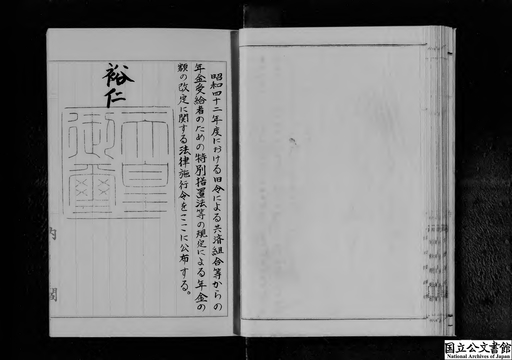 昭和四十二年度における旧令による共済組合等からの
年金受給者のための特別措置法等の規定による年金の
額の改定に関する法律施行令をここに公布する。
裕仁
天皇
御璽
内閣
国立公文書館
National Archives of Japan